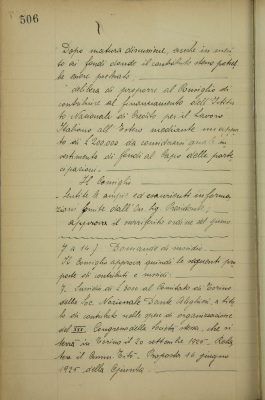 506
Dopo matura discussione, anche in meri-
to ai fondi donde il contributo stesso potreb-
be essere prelevato,
delibera di proporre al Consiglio di
contribuire al finanziamento dell'Istitu-
to Nazionale di Credito per il Lavoro
Italiano all'Estero mediante un appor-
to di L 200.000 da considerarsi quale in-
vestimento di fondi al Capo delle parte-
cipazioni.
Il Consiglio
Sentite le ampie ed esaurienti informa-
zioni fornite dall'On. Presidente,
approva il surriferito ordine del giorno
7 a 14) Domande di sussidio.
Il Consiglio approva quindi le seguenti pro-
poste di contributi e sussidi:
7. Sussidio di L al Comitato di Torino
della Soc. Nazionale Dante Alighieri, a tito-
lo di contributo nelle spese di organizzazione
del XXX Congresso della Società stessa, che si
terrà in Torino il 20 settembre 1925.
Proposta 16 giugno
1925 della Giunta.